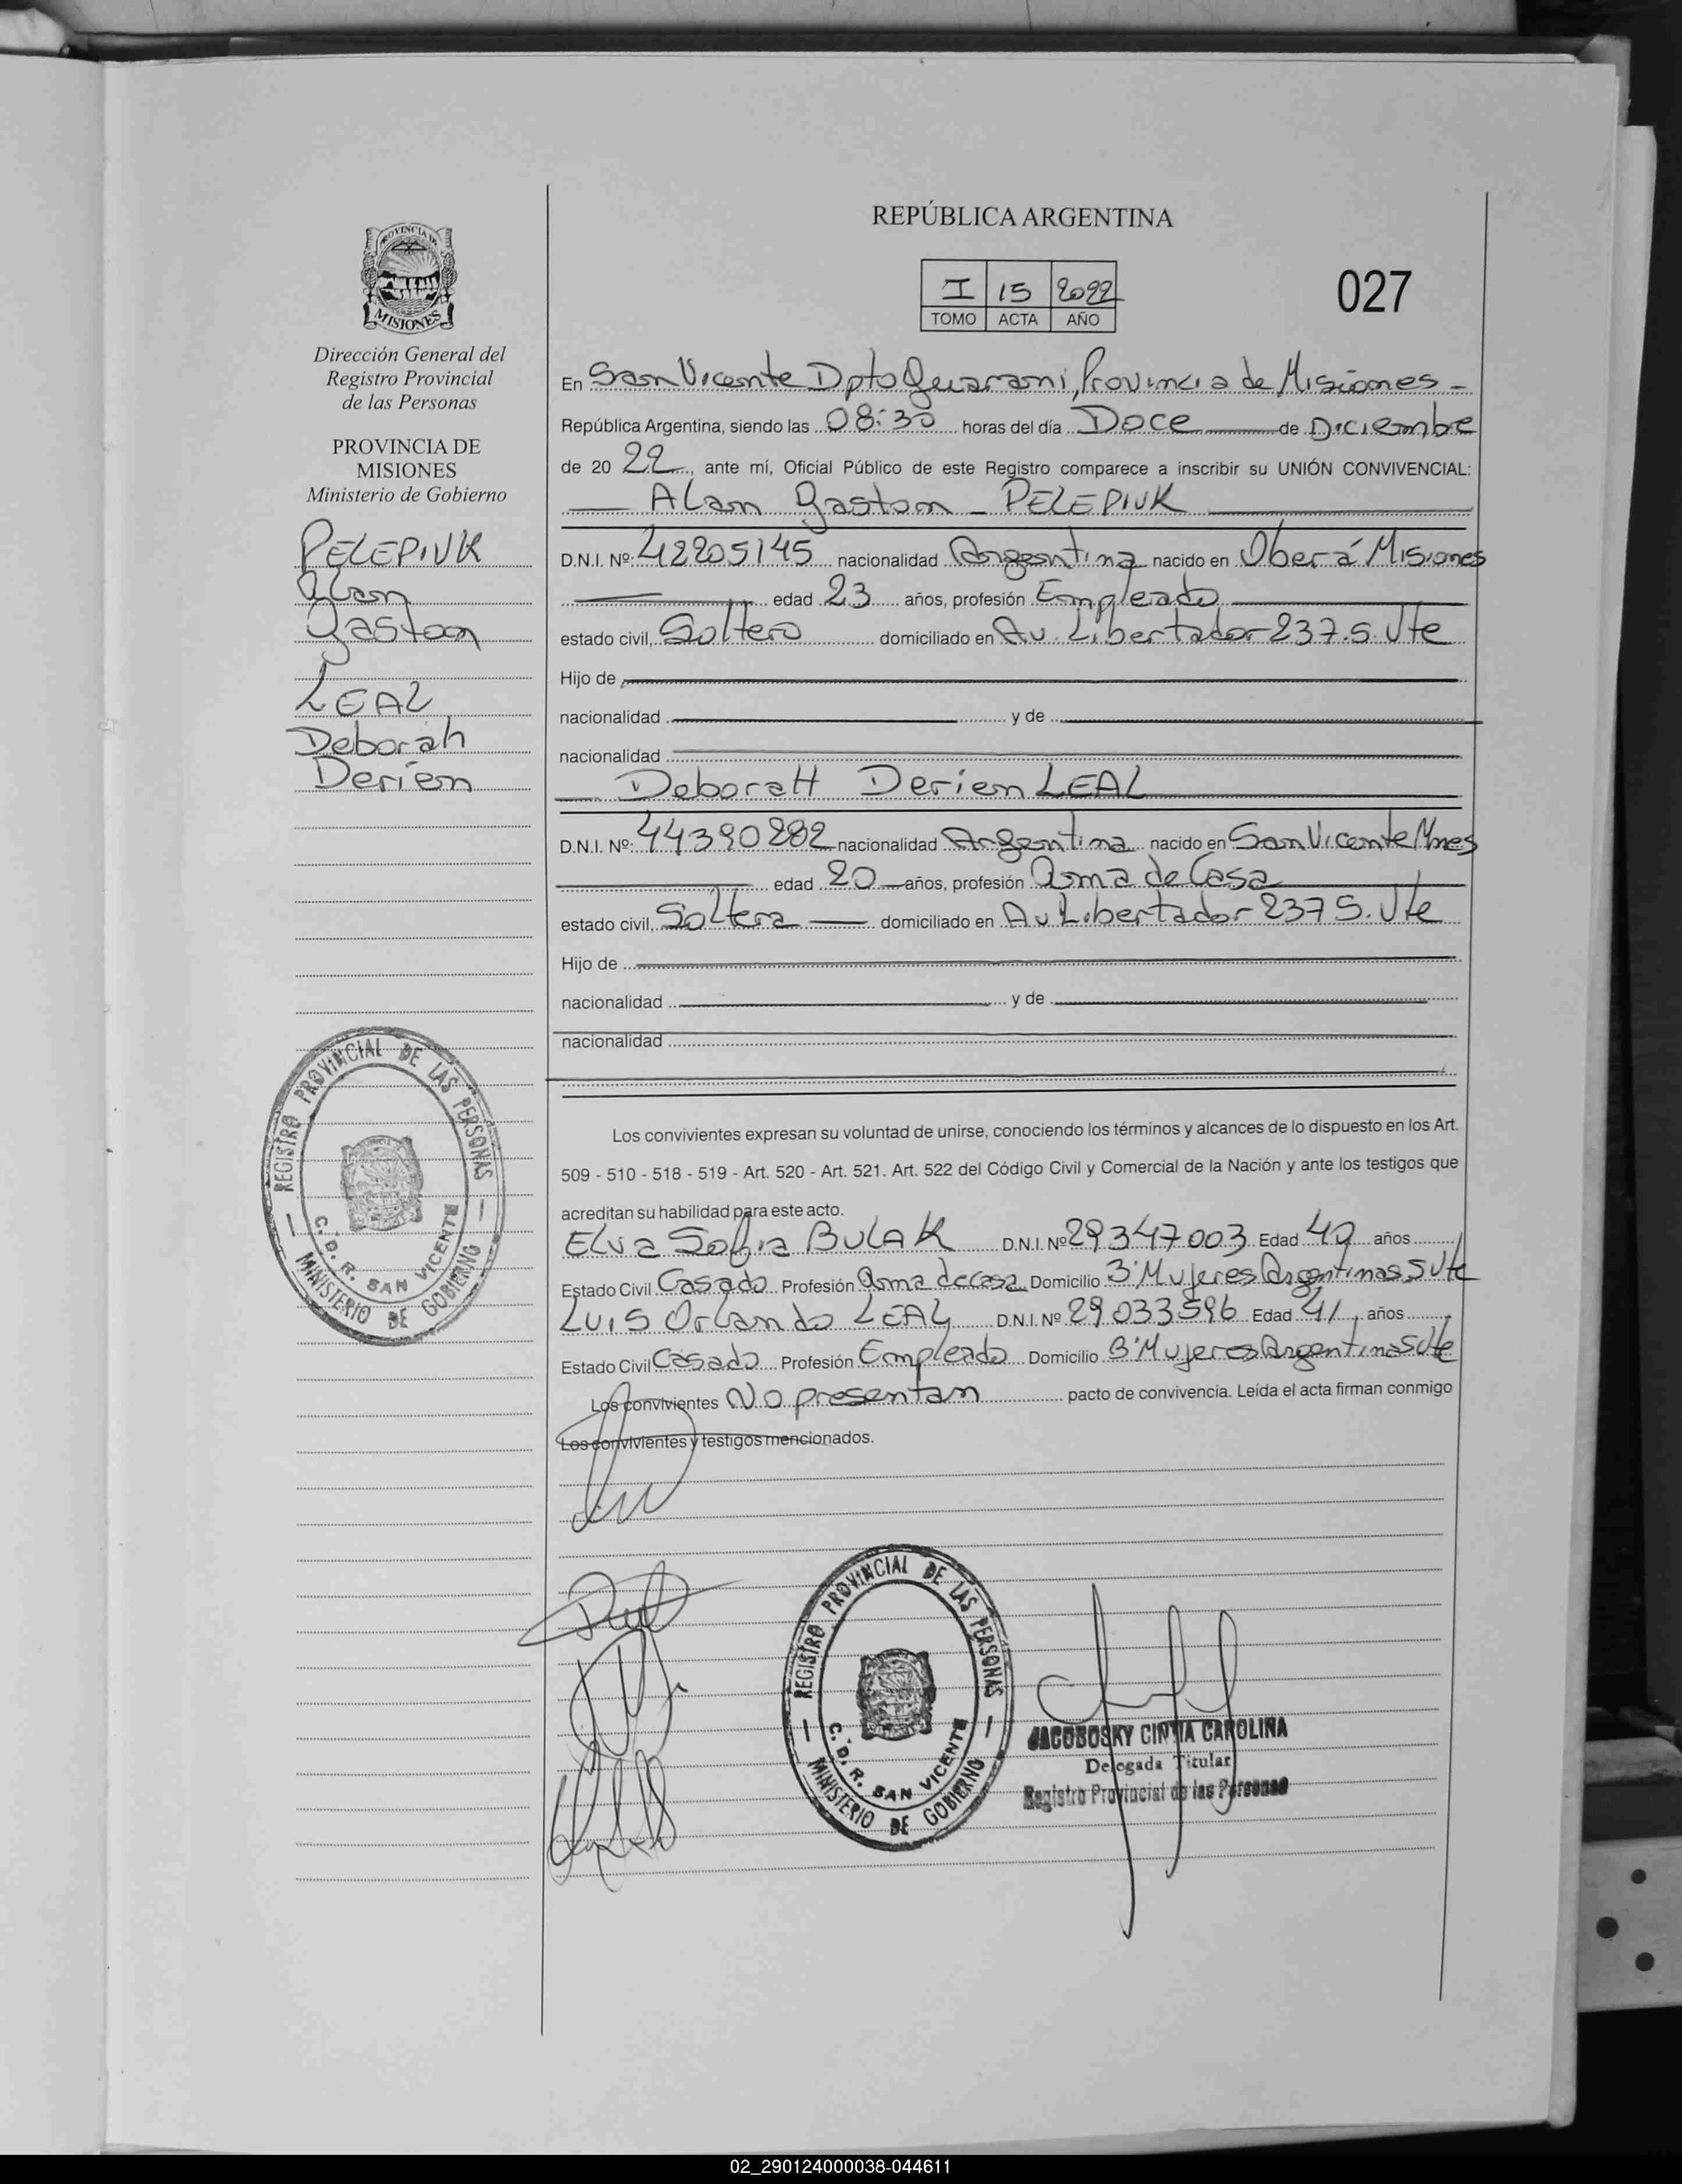 REPÚBLICA ARGENTINA
I 15 2022
TOMO ACTA AÑO
027
PROVINCIA DE
MISIONES
Dirección General del
Registro Provincial
de las Personas
PROVINCIA DE
MISIONES
Ministerio de Gobierno
PELEPIUK
Alan
Gaston
LEAL
Deborah
Derien
REGISTRO PROVINCIAL DE LAS PERSONAS
C. D. R. SAN VICENTE
MINISTERIO DE GOBIERNO
En San Vicente Dpto Guarani, Provincia de Misiones -
República Argentina, siendo las 08:30 horas del día Doce de Diciembre
de 20 22, ante mí, Oficial Público de este Registro comparece a inscribir su UNIÓN CONVIVENCIAL:
Alan Gaston - PELEPIUK
D.N.I. Nº: 42205145 nacionalidad Argentina nacido en Oberá Misiones
edad 23 años, profesión Empleado
estado civil, Soltero domiciliado en Av. Libertador 237. S. Vte
Hijo de
nacionalidad y de
nacionalidad
DeboraH Derien LEAL
D.N.I. Nº: 44390282 nacionalidad Argentina nacido en San Vicente Mnes
edad 20 años, profesión Ama de Casa
estado civil, Soltera domiciliado en Av Libertador 237 S. Vte
Hijo de
nacionalidad y de
nacionalidad
Los convivientes expresan su voluntad de unirse, conociendo los términos y alcances de lo dispuesto en los Art.
509 - 510 - 518 - 519 - Art. 520 - Art. 521. Art. 522 del Código Civil y Comercial de la Nación y ante los testigos que
acreditan su habilidad para este acto.
Elva Sofia BULAK D.N.I. Nº 29347003 Edad 40 años
Estado Civil Casado Profesión Ama de casa Domicilio Bº Mujeres Argentinas S Vte
Luis Orlando LEAL D.N.I. Nº 29.033.596 Edad 41 años
Estado Civil Casado Profesión Empleado Domicilio Bº Mujeres Argentinas Vte
Los convivientes No presentan pacto de convivencia. Leída el acta firman conmigo
Los convivientes y testigos mencionados.
REGISTRO PROVINCIAL DE LAS PERSONAS
C. D. R. SAN VICENTE
MINISTERIO DE GOBIERNO
JACOBOSKY CINTIA CAROLINA
Delegada Titular
Registro Provincial de las Personas
02_290124000038-044611